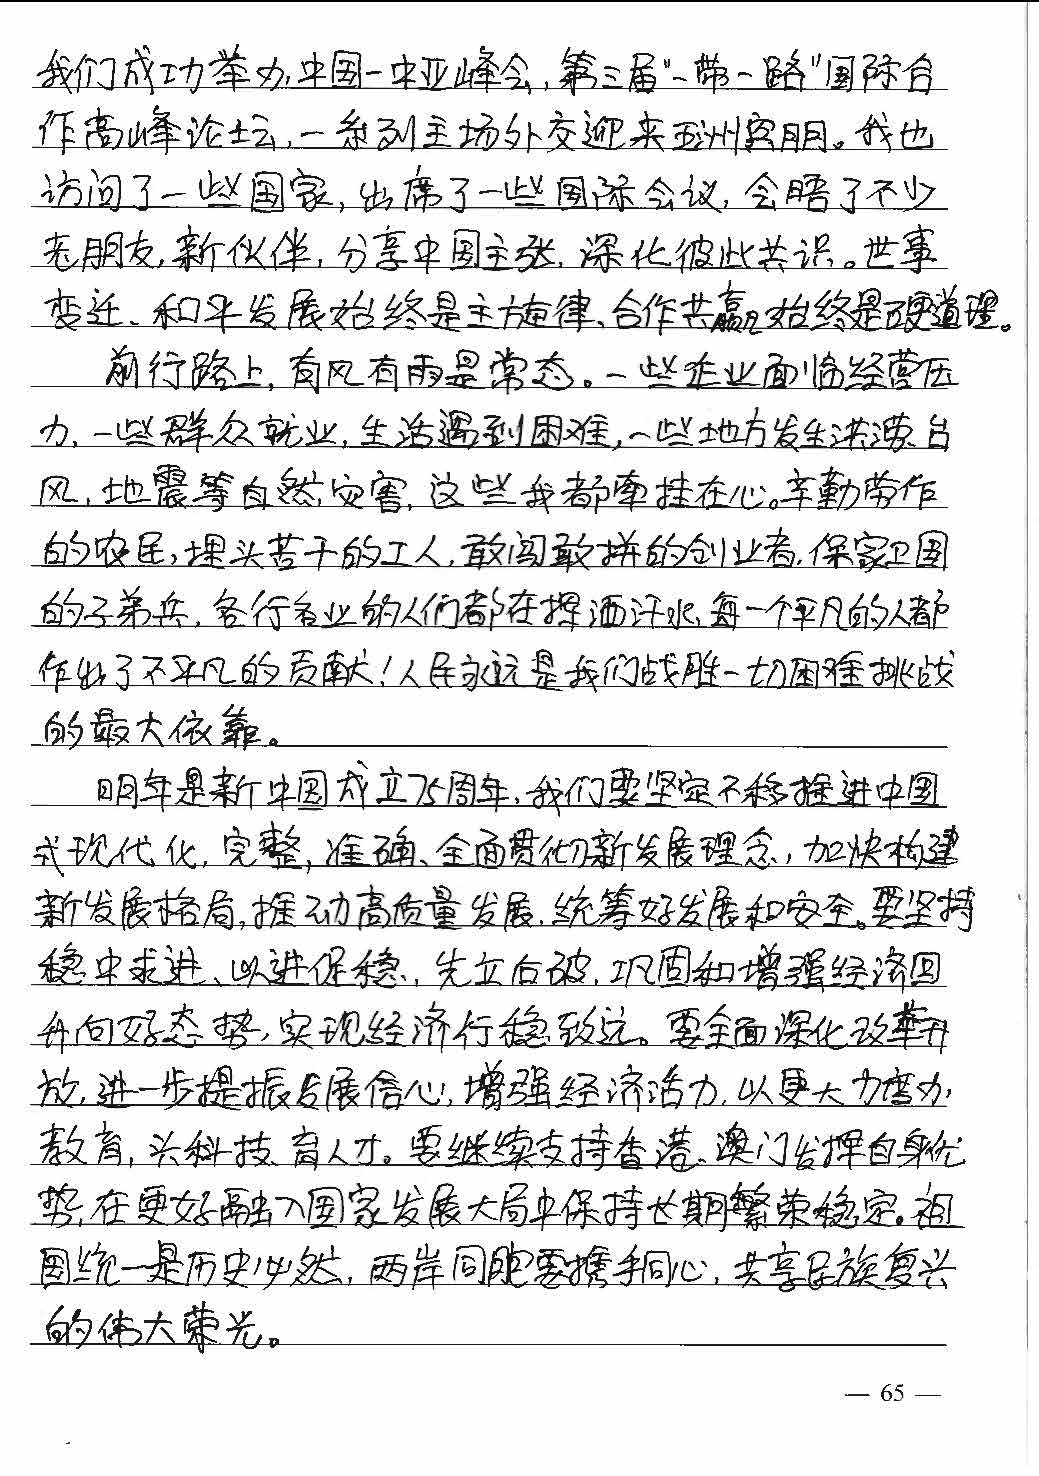 我们成功举办中国一中亚峰会,第三届“一带一路”国际合
作高峰论坛,一系列主场外交迎来五洲宾朋。我也
访问了一些国家,出席了一些国际会议,会晤了不少
老朋友,新伙伴,分享中国主张,深化彼此共识。世事
变迁、和平发展始终是主旋律、合作共赢始终是硬道理。
前行路上,有风有雨是常态。一些企业面临经营压
力,一些群众就业,生活遇到困难,一些地方发生洪涝、台
风,地震等自然灾害,这些我都牵挂在心。辛勤劳作
的农民,埋头苦干的工人,敢闯敢拼的创业者,保家卫国
的子弟兵,各行各业的人们都在挥洒汗水,每一个平凡的人都
作出了不平凡的贡献!人民永远是我们战胜一切困难挑战
的最大依靠。
明年是新中国成立75周年,我们要坚定不移推进中国
式现代化,完整,准确、全面贯彻新发展理念,加快构建
新发展格局,推动高质量发展,统筹好发展和安全。要坚持
稳中求进、以进促稳、先立后破,巩固和增强经济回
升向好态势,实现经济行稳致远。要全面深化改革开
放,进一步提振发展信心,增强经济活力,以更大力度办
教育,兴科技、育人才。要继续支持香港、澳门发挥自身优
势,在更好融入国家发展大局中保持长期繁荣稳定。祖
国统一是历史必然,两岸同胞要携手同心,共享民族复兴
的伟大荣光。
— 65 —